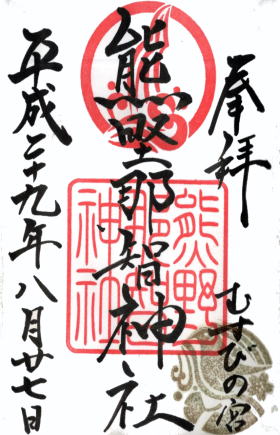 奉拝
むすびの宮
熊埜那智神社
熊野那智神社
平成二十九年八月廿七日